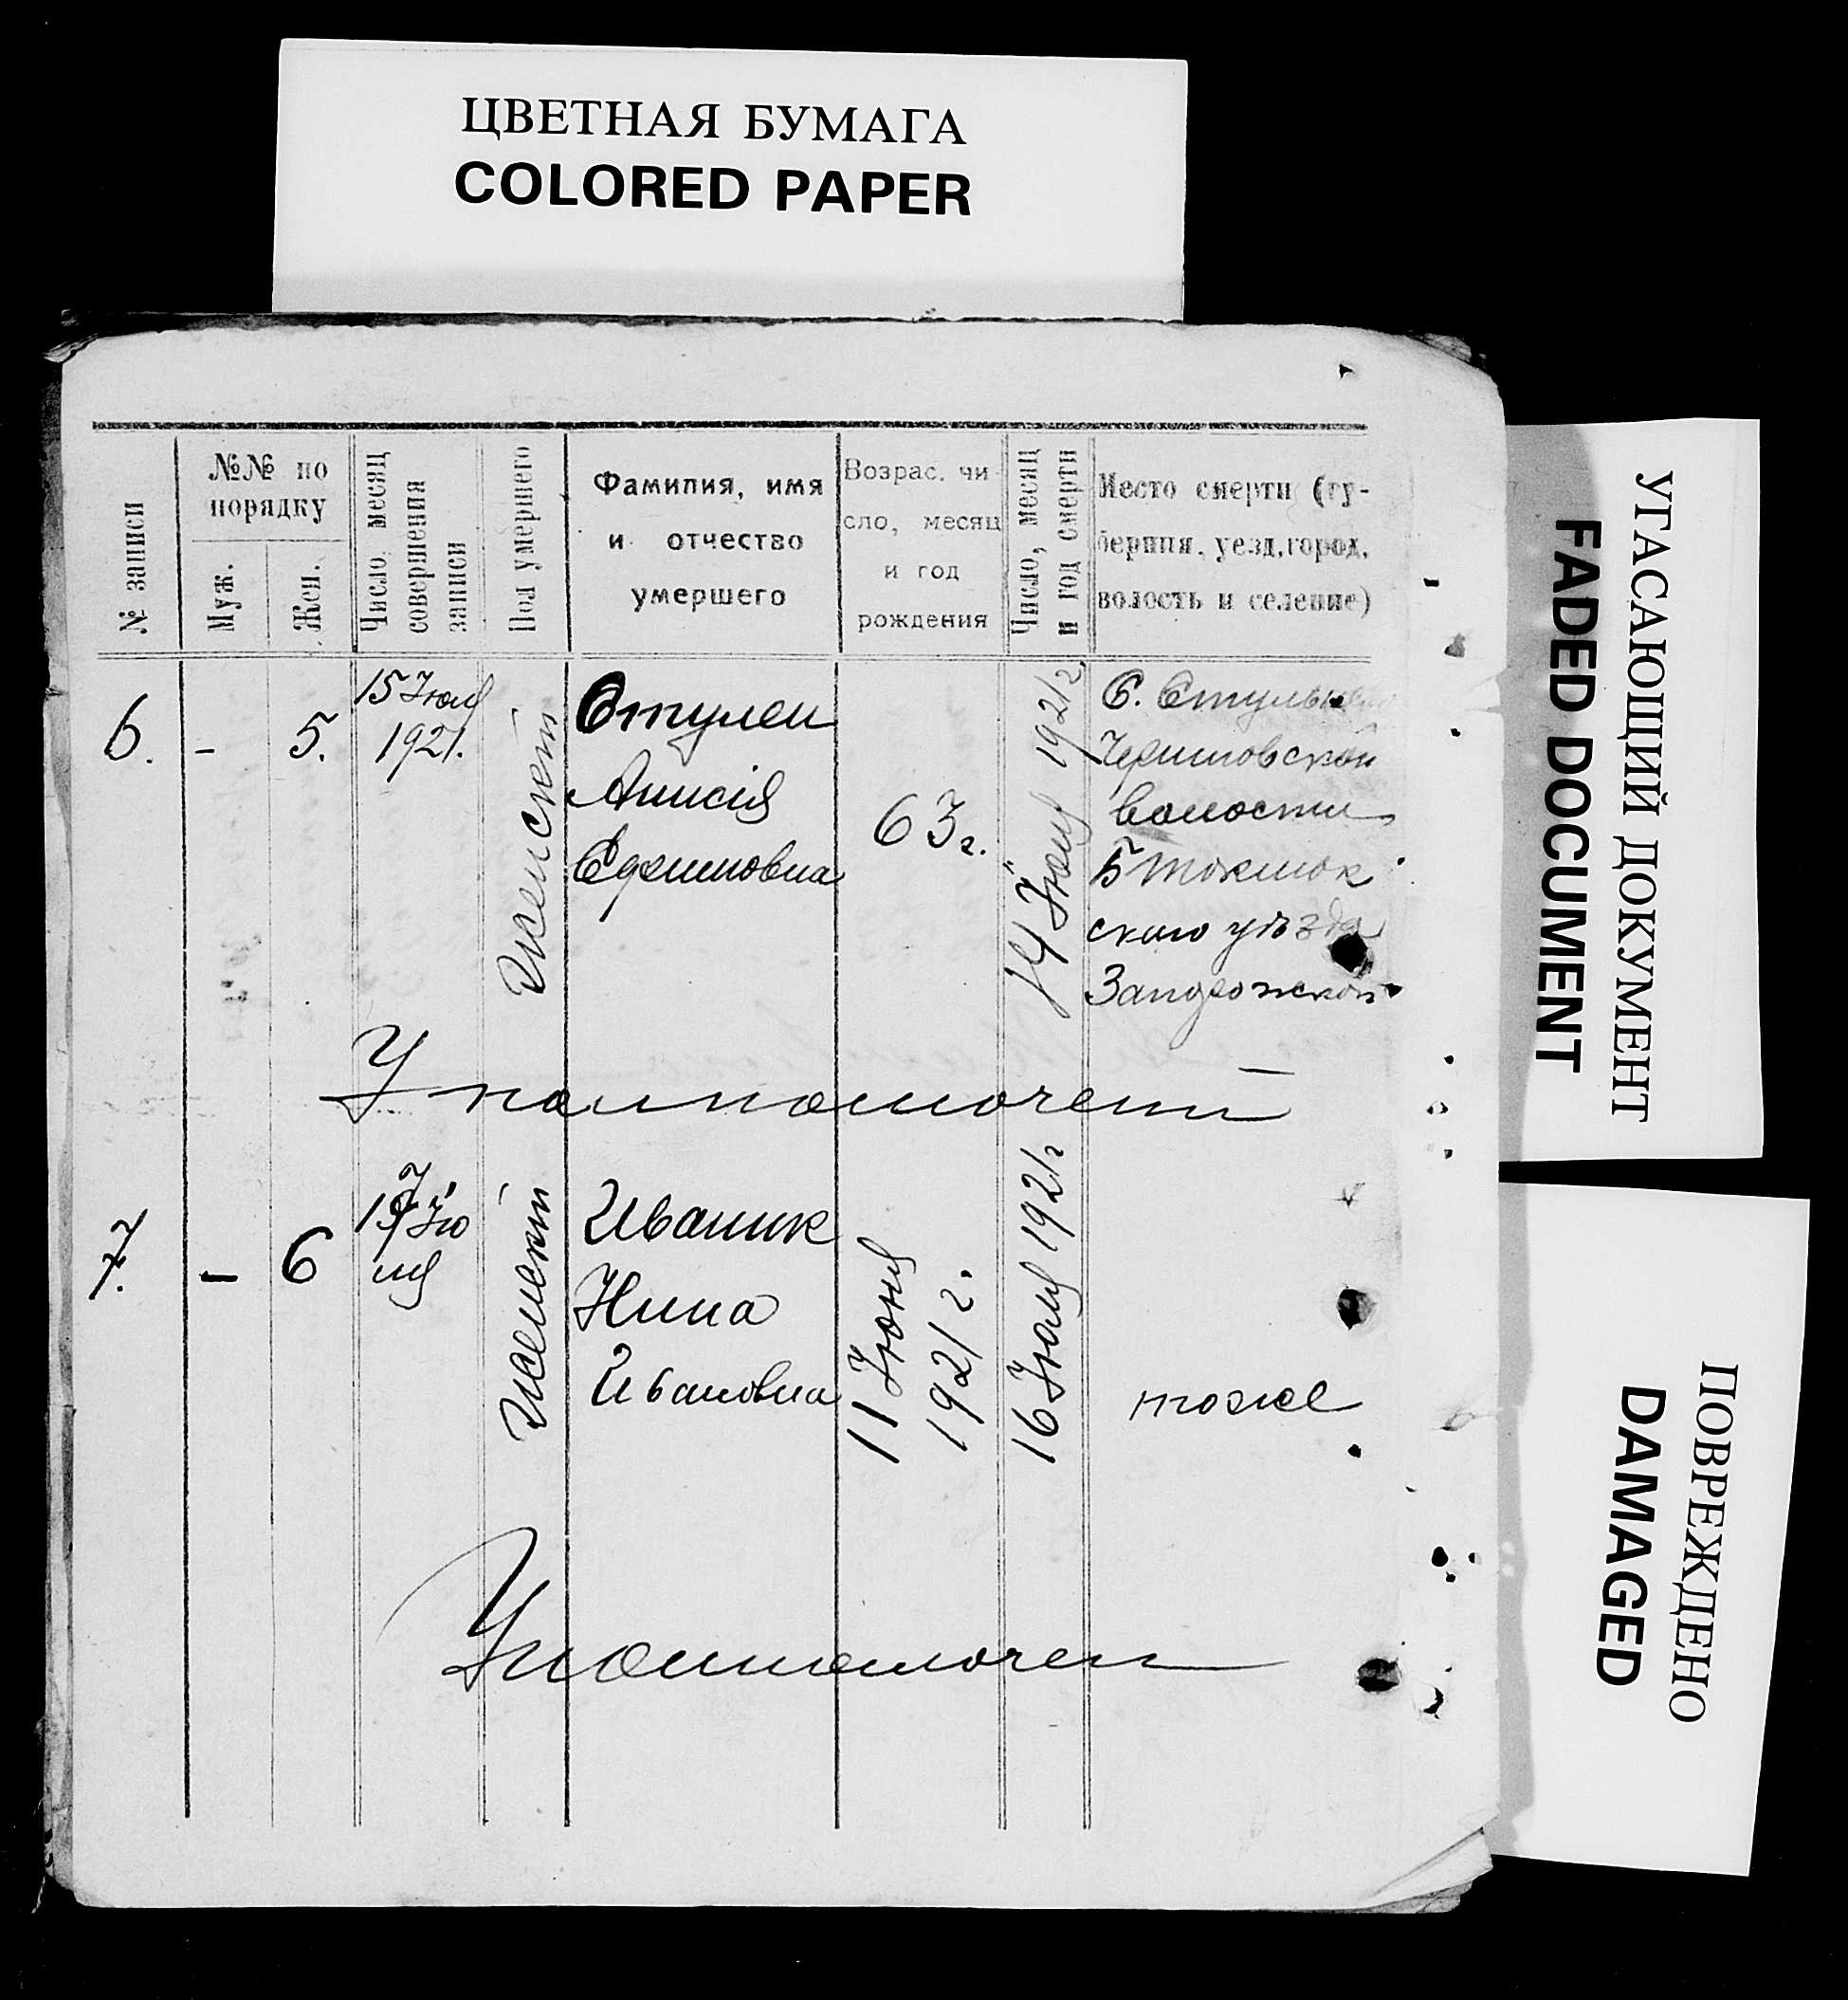 ЦВЕТНАЯ БУМАГА
COLORED PAPER
№ записи
№№ по
порядку
Муж.
Жен.
Число, месяц
совершения
записи
Пол умершего
Фамилия, имя
и отчество
умершего
Возрас. чи-
сло, месяц
и год
рождения
Число, месяц
и год смерти
Место смерти (гу-
берния, уезд, город,
волость и селение)
6.
-
5.
15 Июля
1921.
Женский
Ступен
Анисія
63 г.
14 Июля 1921 г.
волости
Б Токмак
ского уѣзда
Запорожской
7.
-
6
Ию
ля
Женский
Иваник
Нина
Ивановна
11 Июня
1921 г.
16 Июля 1921 г
тоже
УГАСАЮЩИЙ ДОКУМЕНТ
FADED DOCUMENT
ПОВРЕЖДЕНО
DAMAGED